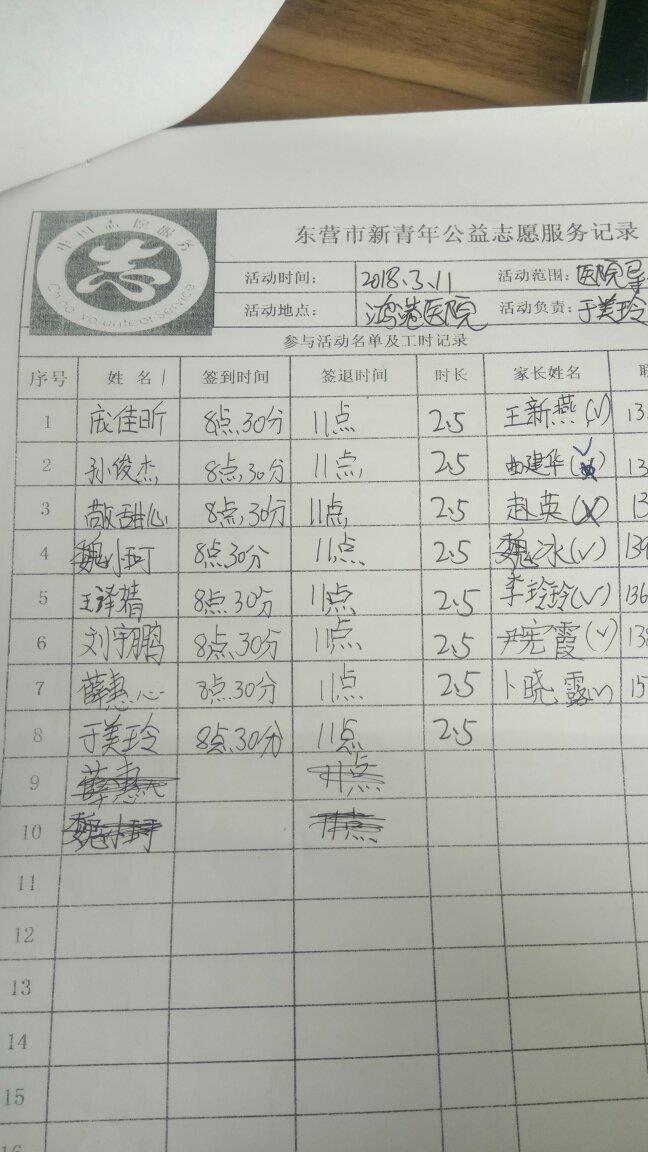 中国志愿服务
China Volunteer Service
东营市新青年公益志愿服务记录
活动时间： 2018.3.11 活动范围：医院导
活动地点： 鸿港医院 活动负责：于美玲
参与活动名单及工时记录
序号 姓 名 签到时间 签退时间 时长 家长姓名
1 庞佳昕 8点30分 11点 2.5 王新燕(√) 13
2 孙俊杰 8点,30分 11点, 2.5 曲建华 √ 13
3 8点,30分 11点 2.5 赵英 13
4 魏小珂 8点30分 11点. 2.5 魏冰(√) 139
5 王译精 8点.30分 11点 2.5 李玲玲(√) 136
6 刘宇鹏 8点.30分 11点. 2.5 尹宪霞(√) 138
7 薛惠心 8点.30分 11点 2.5 卜晓露(√) 15
8 于美玲 8点.30分 11点 2.5
9 薛惠 11点
10 魏小珂 11点
11
12
13
14
15
16